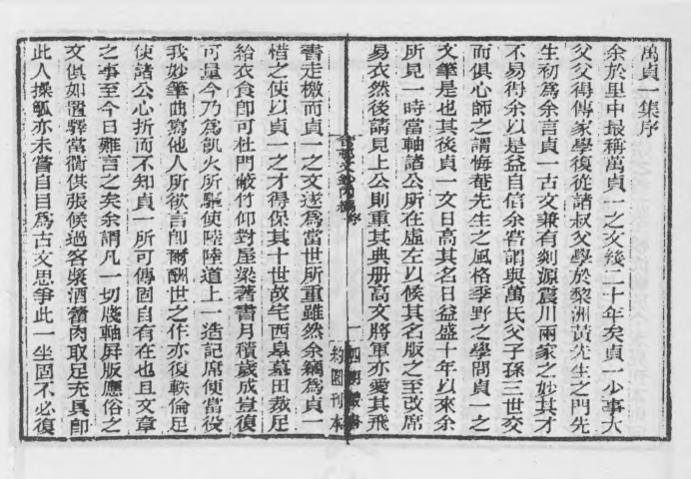 萬貞一集序
余於里中最稱萬貞一之文後二十年矣貞一少事大
父父得傳家學復從諸叔父學於黎洲黃先生之門先
生初為余言貞一古文兼有剡源震川兩家之妙其才
不易得余以是益自信余嘗謂與萬氏父子孫三世交
而俱心師之謂悔菴先生之風格季野之學問貞一之
文筆是也其後貞一文日高其名日益盛十年以來余
所見一時當軸諸公所在虛左以候其名版之至改席
易衣然後請見上公則重其典册高文將軍亦愛其飛
序
一
四明叢書
約園刊本
書走檄而貞一之文遂為當世所重雖然余竊為貞一
惜之使以貞一之才得保其十世故宅西臯墓田裁足
給衣食卽可杜門蔽竹仰對屋梁著書月積歲成豈復
可量今乃為飢火所驅使陸陸道上一造記席便當役
我妙筆曲寫他人所欲言卽爾酬世之作亦復軼倫足
使諸公心折而不知貞一所可傳固自有在也且文章
之事至今日難言之矣余謂凡一切牋軸屏版應俗之
文俱如置驛當衢供張候過客漿酒藿肉取足充具卽
此人操觚亦未嘗自目為古文思爭此一坐固不必復